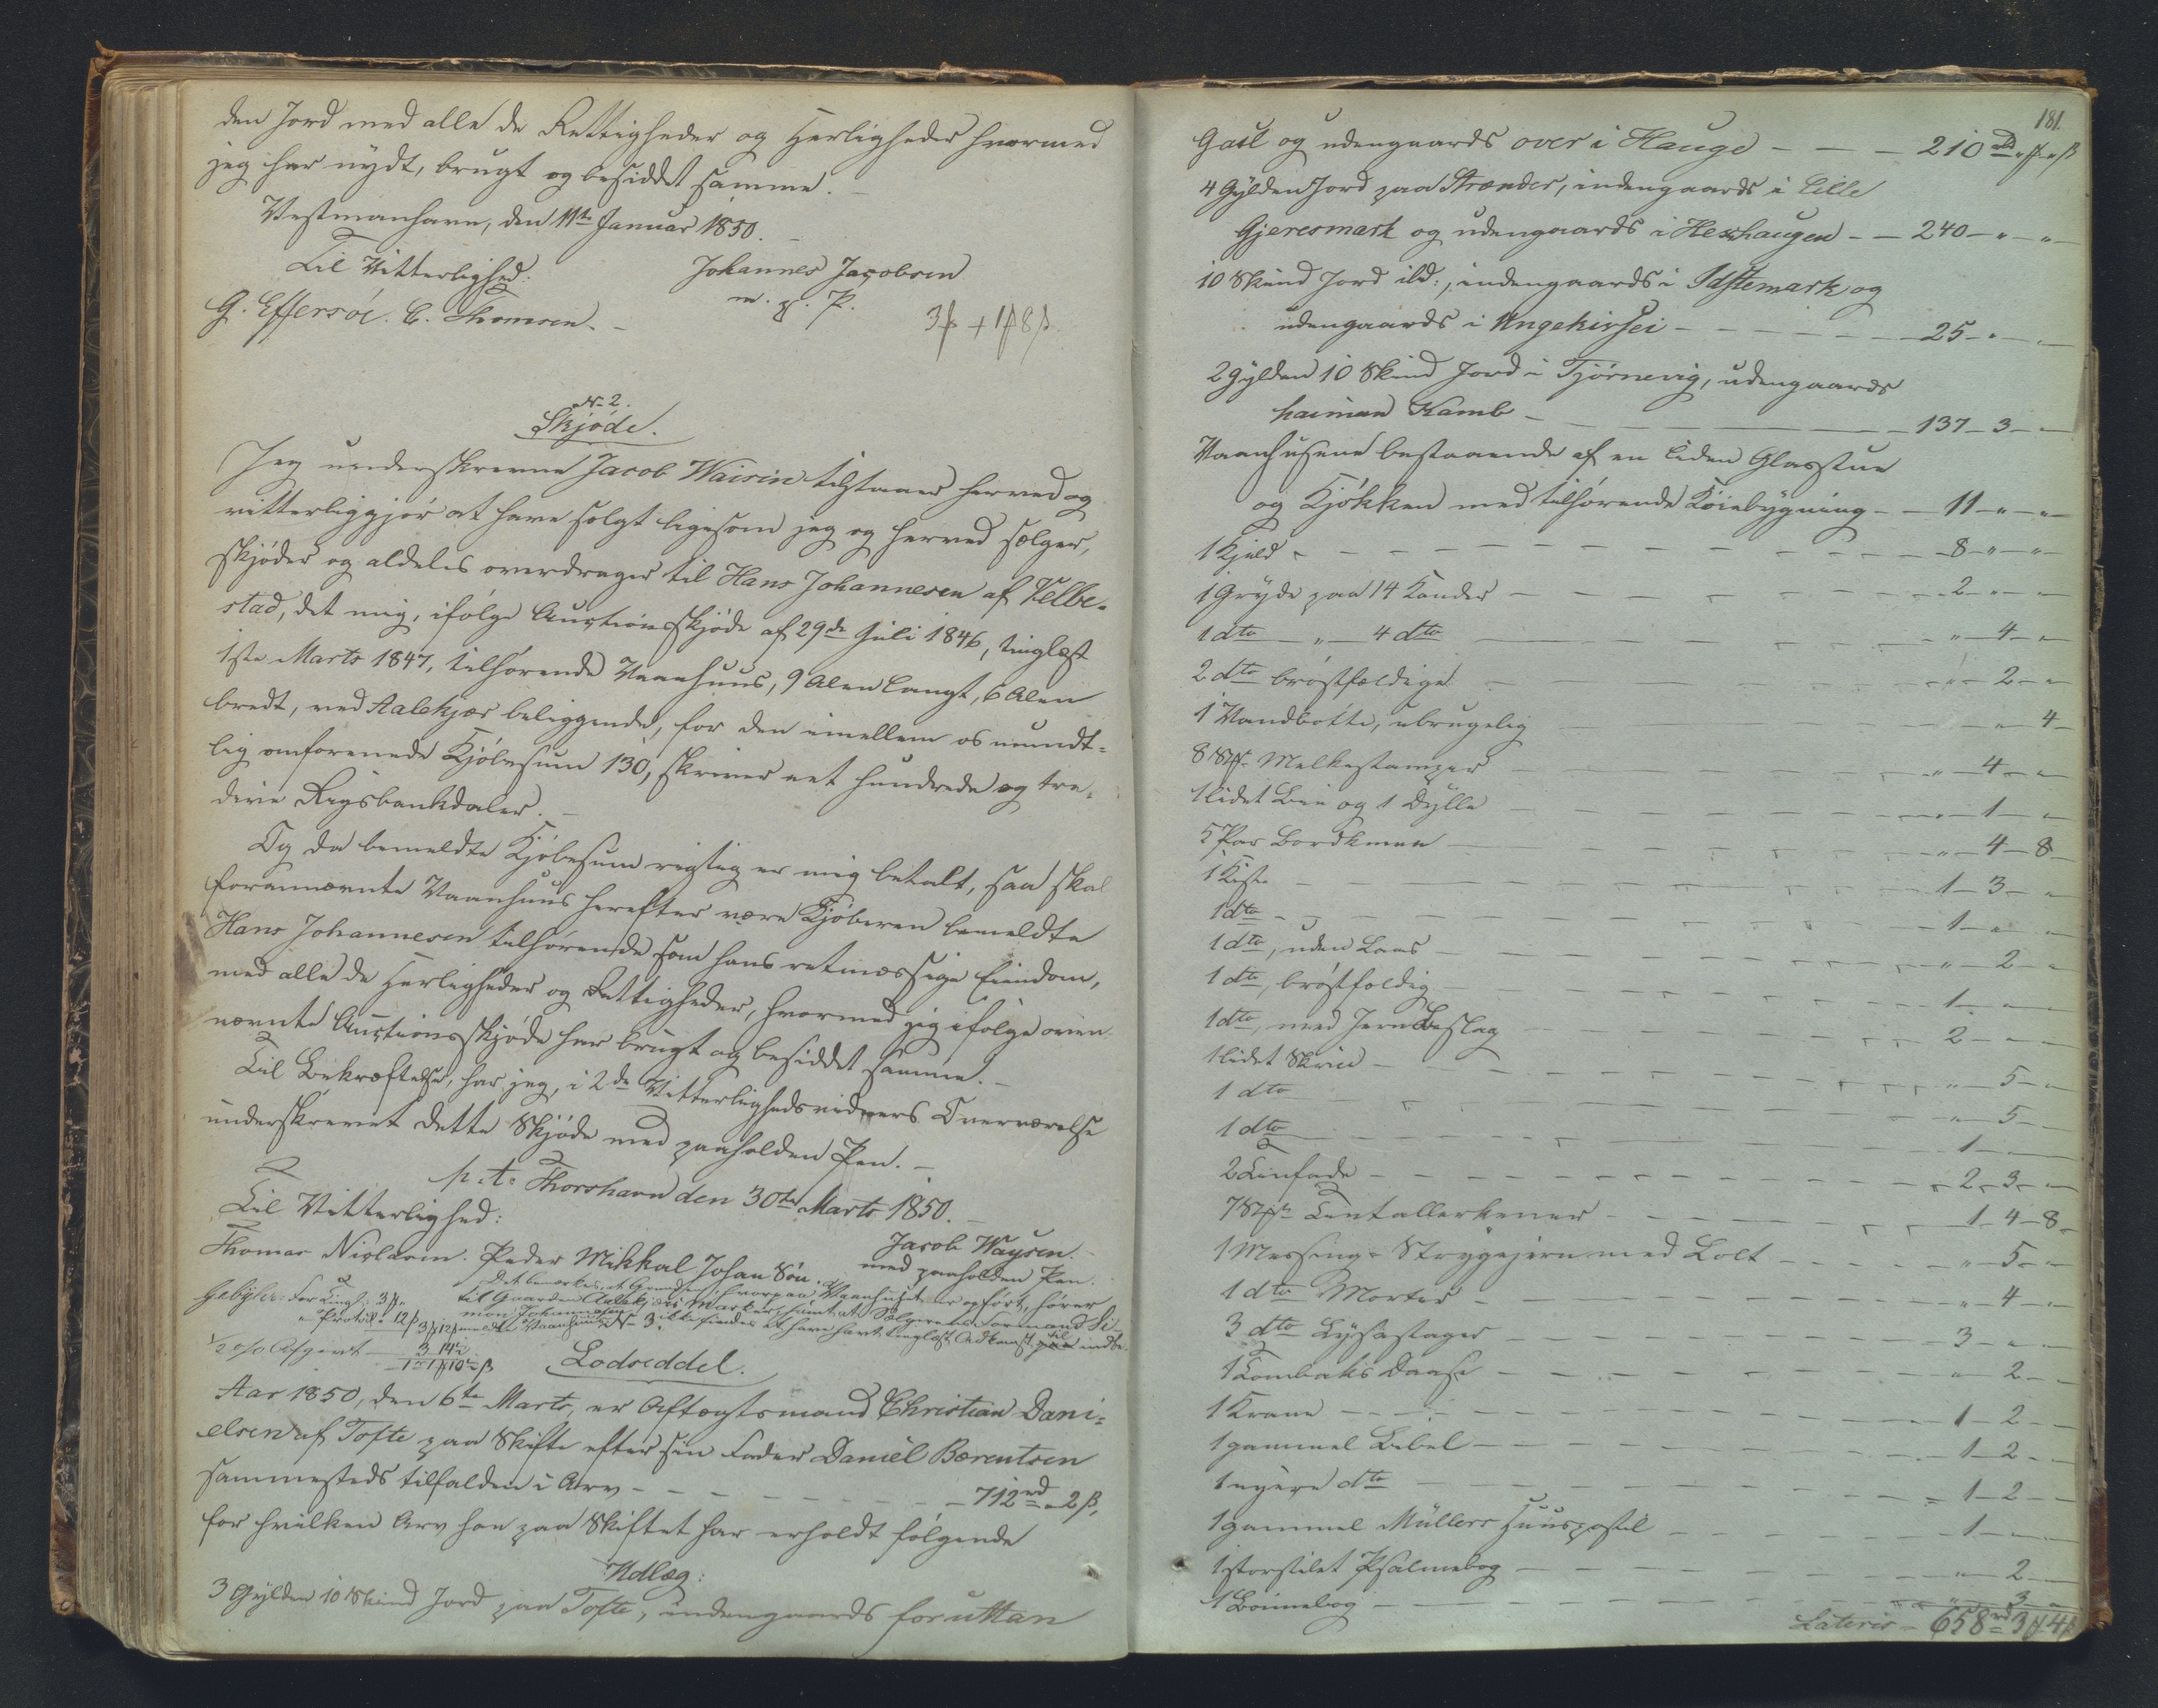 den Jord med alle de Rettigheder og Herligheder hvormed
jeg har nydt, brugt og besiddet samme. –
Vestmanhavn, den 11te Januar 1850. –
Til Vitterlighed:
Johannes Jacobsen
m. p. P.
G. Effersøe. C. Thomsen. –
3ß + 1ß 8ß.
No 2.
Skjøde.
Jeg underskrevne Jacob Waisin tilstaaer herved og
vitterliggjør at have solgt ligesom jeg og herved sælger,
skjøder og aldeles overdrager til Hans Johannesen af Velbe-
stad, det mig, ifølge Auctionsskjøde af 29de Juli 1846, tinglæst
1ste Marts 1847, tilhørende Vaanhuus, 9 Alen langt, 6 Alen
bredt, ved Aalekjær beliggende, for den imellem os mundt-
lig omforenede Kjøbesum 130, skriver eet hundrede og tre-
divie Rigsbankdaler. –
Og da bemeldte Kjøbesum rigtig er mig betalt, saa skal
forannævnte Vaanhuus herefter være Kjøberen bemeldte
Hans Johannesen tilhørende som hans retmæssige Eiendom,
med alle de Herligheder og Rettigheder, hvormed jeg ifølge oven-
nævnte Auctionsskjøde har brugt og besiddet samme. –
Til Bekræftelse, har jeg, i 2de Vitterlighedsvidners Overværelse
underskrevet dette Skjøde med paaholden Pen. –
p. t. Thorshavn den 30te Marts 1850. –
Til Vitterlighed:
Jacob Waysen. –
Thomas Niclasen. Peder Mikkal Johan Søn.
med paaholden Pen.
Det bemærkes, at Grunden hvorpaa Vaanhuset er opført, hører
Gebyhr: For Tingl. 3ß „
til Gaarden Aalekjærs Marker, samt at Sælgerens Formand Si-
„ Protoc. 12ß
mon Johannesen ikke findes at have havt tinglæst Adkomst til indbe-
3ß 12ß
meldte Vaanhuus No 3.
½ o/o Afgivt – 3 14½
1rd 1ß 10½ß
Lodseddel.
Aar 1850, den 6te Marts, er Aftægtsmand Christian Dani-
elsen af Tofte paa Skifte efter sin Fader Daniel Bærentsen
sammesteds tilfalden i Arv – – – 712rd „ 2ß,
for hvilken Arv han paa Skiftet har erholdt følgende
Udlæg:
3 Gylden 10 Skind Jord paa Tofte, indengaards foruttan
181.
Gail og udengaards over i Hauge – – – 210rd „ß „ß
4 Gylden Jord paa Strænder, indengaards i Lille
Gjeresmark og udengaards i Heshaugen – – 240 – „ – „ –
10 Skind Jord ibd:, indengaards i
udengaards i Ungekirsei – – – 25 – „ – „
2 Gylden 10 Skind Jord i Tjørnevig, udengaards
haiman Kamb – – – 137 – 3 – „
Vaanhusene bestaaende af en liden Glasstue
og Kjøkken med tilhørende Køiebygning – – 11 – „ – „
1 Kjeld – – – 8 – „ – „
1 Gryde paa 14 Kander – – – 2 – „ – „
1 dto „ 4 dto – – – „ – 4 – „
2 dto brøstfældige – – – „ – 2 – „
1 Vandbøtte, ubrugelig – – – „ – „ 4 –
8 Stk. Melkestamper – – – „ – 4 – „
1 lidet Lin og 1 Dylle – – – „ – 1 – „
5 Par Bordknive – – – „ – 4 – 8 –
1 Kiste – – – 1 – 3 – „
1 dto – – – 1 – „ – „
1 dto, uden Laas – – – „ – 2 – „
1 dto, brøstfældig – – – 1 – „ – „
1 dto, med Jern Beslag – – – 2 – „ – „
1 lidet Skrin – – – „ – 5 – „
1 dto – – – „ – 5 – „
1 dto – – – 1 – „ – „
2 Tinfade – – – 2 – 3 – „
7 Stk. Tintallerkener – – – 1 – 4 – 8 –
1 Messing-Strygejern med Bolt – – – „ – 5 – „
1 dto Morter – – – „ – 4 – „
3 dto Lysestager – – – 3 – „ – „
1 Tombaks Daase – – – „ – 2 – „
1 Krane – – – 1 – 2 – „
1 gammel Bibel – – – 1 – 2 – „
1 nyere dto – – – 1 – 2 – „
1 gammel Müllers Huuspostil – – – 1 – „ – „
1 storstilet Psalmebog – – – „ – 2 – „
1 Bønnebog – – – „ – 3 – „
Lateris – 658rd 3ß 4ß